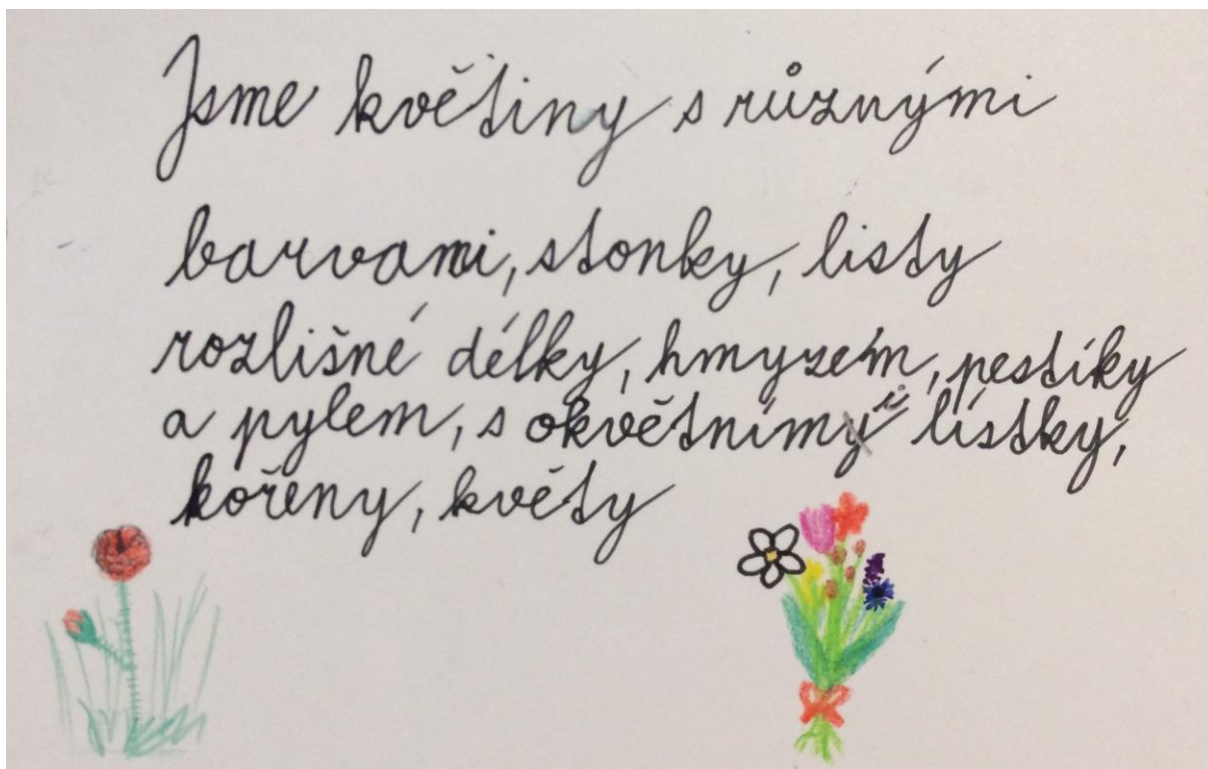 Jsme květiny s různými
barvami, stonky, listy
rozlišné délky, hmyzem, pestíky
a pylem, s okvětními lístky,
kořeny, květy